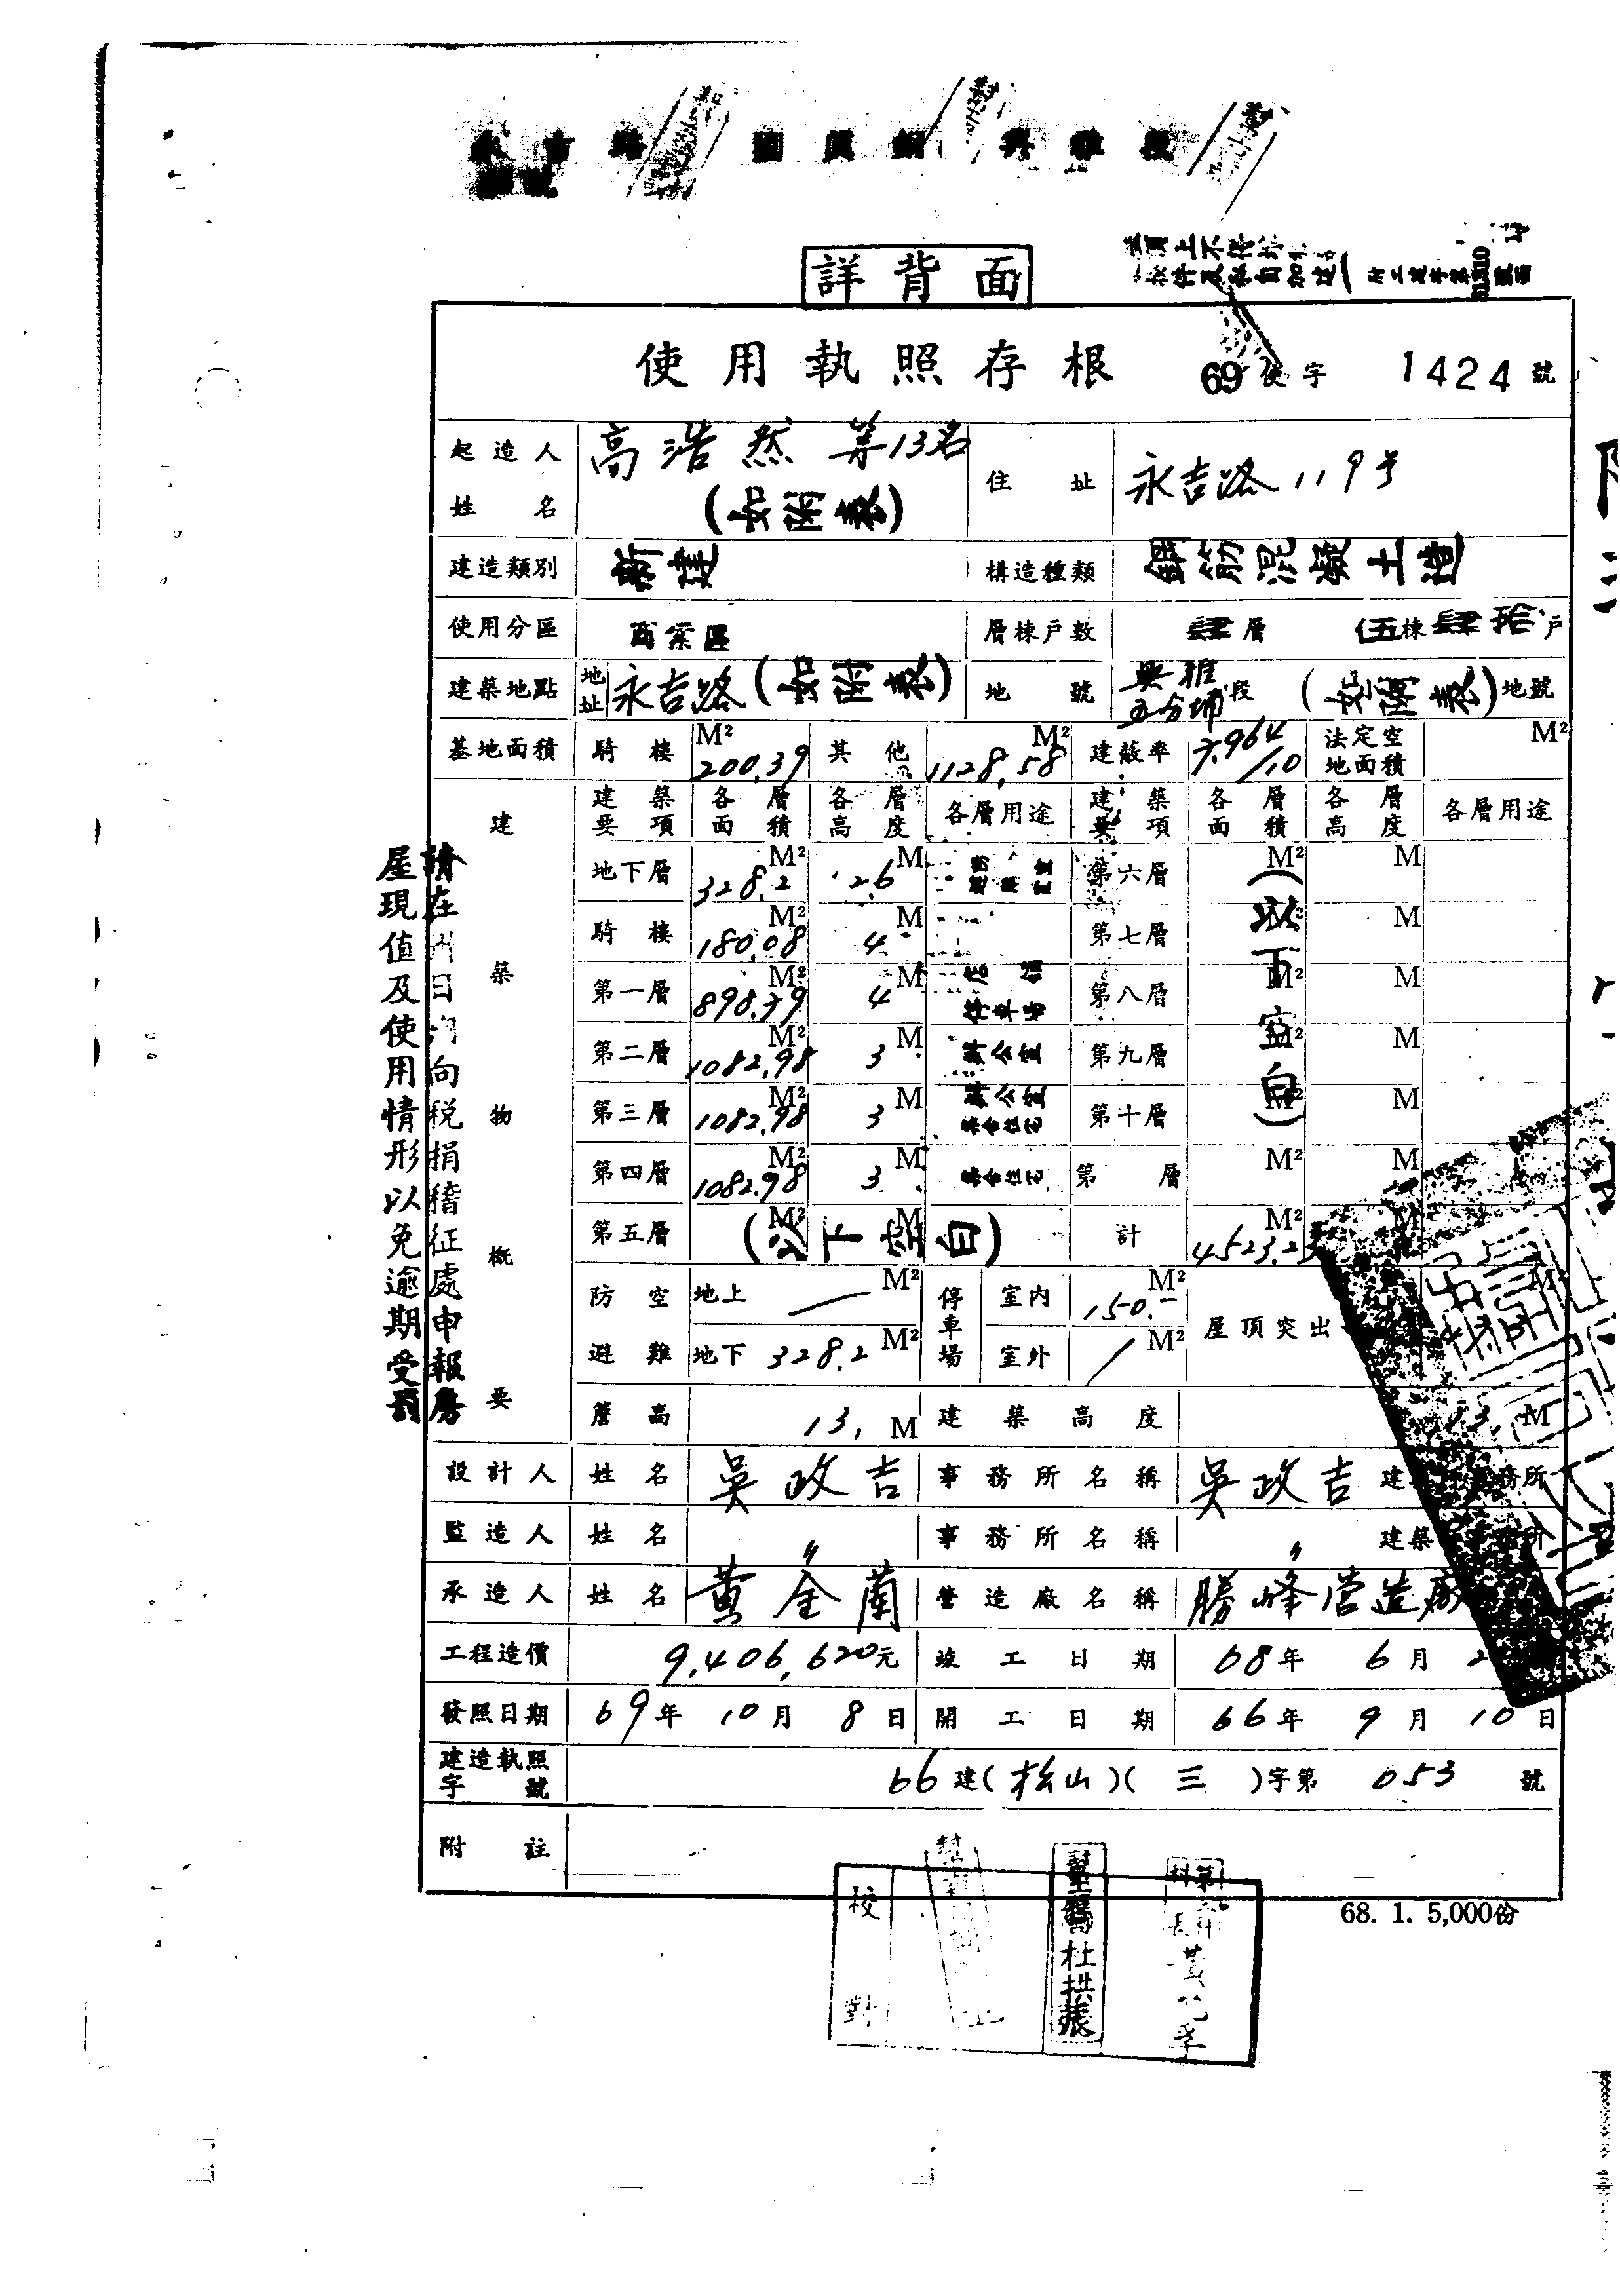 詳背面
使用執照存根 69使字 1424號
起造人姓名 高浩然等13名 (如附表) 住址 永吉路119号
建造類別 新建 構造種類 鋼筋混凝土造
使用分區 商業區 層棟戶數 肆層 伍棟肆拾戶
建築地點 地址 永吉路(如附表) 地號 興雅 五分埔段 (如附表)地號
基地面積 騎樓 M² 200.39 其他 M² 1128.58 建蔽率 /10 法定空地面積 M²
建築物概要
建築要項 各層面積 各層高度 各層用途 建築要項 各層面積 各層高度 各層用途
地下層 328.2 M² 2.6 M 第六層 M² M
騎樓 180.08 M² 4 M 第七層 M² M
第一層 898.79 M² 4 M 店舖 停車場 第八層 M² M
第二層 1082.98 M² 3 M 辦公室 第九層 M² M
第三層 1082.98 M² 3 M 辦公室 集合住宅 第十層 M² M
第四層 1082.98 M² 3 M 集合住宅 第 層 M² M
(以下空白)
第五層 M² M (以下空白) 計 4523.2 M² M
防空避難 地上 — M² 停車場 室內 150.- M² 屋頂突出 M²
地下 328.2 M² 室外 / M²
簷高 13. M 建築高度 13 M
設計人 姓名 吳政吉 事務所名稱 吳政吉 建 務所
監造人 姓名 〃 事務所名稱 〃 建築 所
承造人 姓名 黃金蘭 營造廠名稱 勝峰営造廠
工程造價 9,406,620元 竣工日期 68年 6月 2
發照日期 69年 10月 8日 開工日期 66年 9月 10日
建造執照字號 66建(松山)(三)字第 053 號
附註
68. 1. 5,000份
請在 日內向稅捐稽征處申報房
屋現值及使用情形以免逾期受罰
校對
杜拱辰